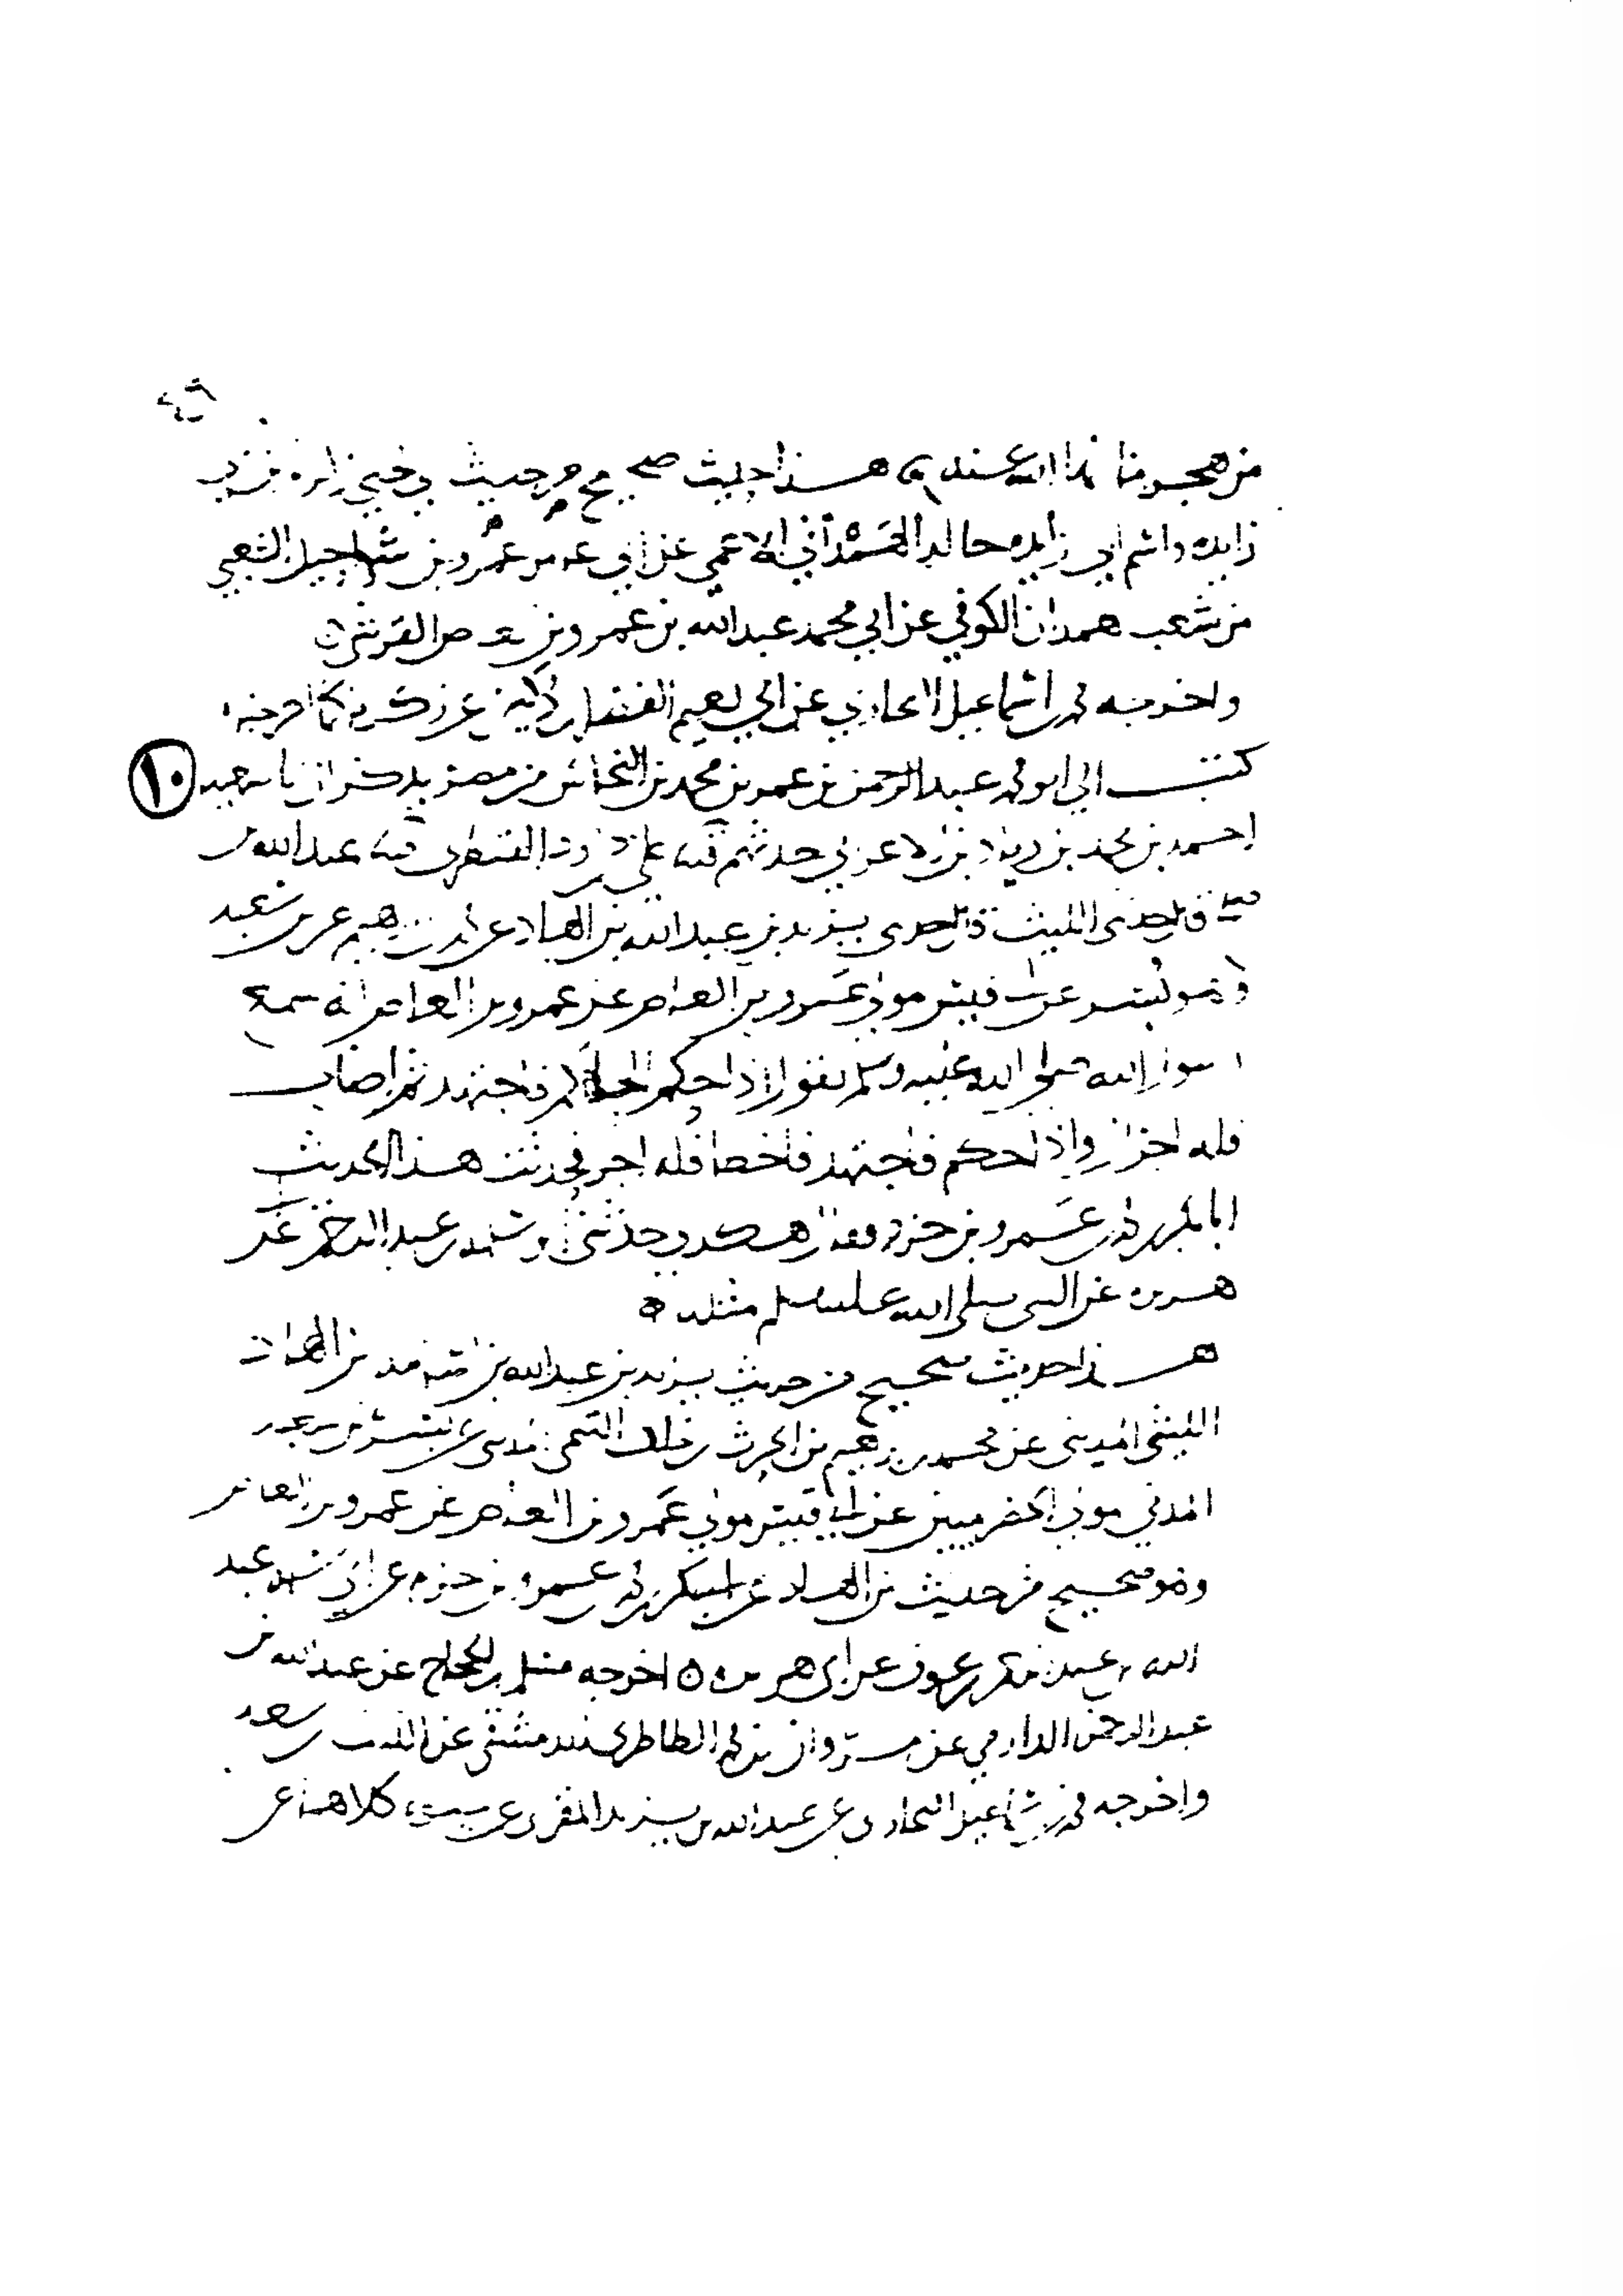 من هجر ما نها الله عنه هذا حديث صحيح من حديث يحيى زكريا بن ابي
زايده واسم ابي زايده خالد الهمداني الاعمى عن ابي عمرو عامر بن شراحيل الشعبي
من شعب همدان الكوفي عن ابي محمد عبدالله بن عمرو بن العاص القرشي
واخرجه محمد بن اسماعيل البخاري عن ابي نعيم الفضل بن دكين عن زكريا كما اخرجناه
كتب الي ابو محمد عبدالرحمن بن عمر بن محمد بن النحاس من مصر يذكر ان ابا سعيد ١٠
احمد بن محمد بن زياد بن الاعرابي حدثهم علي بن داود القنطري عبدالله بن
صالح حدثني الليث حدثني يزيد بن عبدالله بن الهاد عن محمد بن ابرهيم عن بسر بن سعيد
عن ابي قيس مولى عمرو بن العاص عن عمرو بن العاص انه سمع
رسول الله صلى الله عليه وسلم يقول اذا حكم الحاكم فاجتهد ثم اصاب
فله اجران واذا حكم فاجتهد فاخطا فله اجر فحدثت هذا الحديث
ابا بكر بن محمد بن عمرو بن حزم فقال هكذا حدثني ابو سلمة بن عبدالرحمن عن ابي
هريره عن النبي صلى الله عليه وسلم مثله ه
هذا حديث صحيح من حديث يزيد بن عبدالله بن اسامة بن الهاد
الليثي المديني عن محمد بن ابرهيم بن الحرث بن خالد التيمي المدني عن بسر بن سعيد
المدني مولى الحضرميين عن ابي قيس مولى عمرو بن العاص عن عمرو بن العاص
وهو صحيح من حديث بن الهاد عن ابي بكر بن محمد بن عمرو بن حزم عن ابي سلمة عبد
الله بن عبدالرحمن بن عوف عن ابي هريره ه اخرجه مسلم بن الحجاج عن عبدالله بن
عبدالرحمن الدارمي عن مروان بن محمد الطاطري الدمشقي عن الليث بن سعد
واخرجه محمد بن اسماعيل البخاري عن عبدالله بن يزيد المقري عن حيوة كلاهما عن